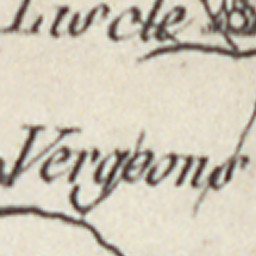 Lus cle
Vergeons